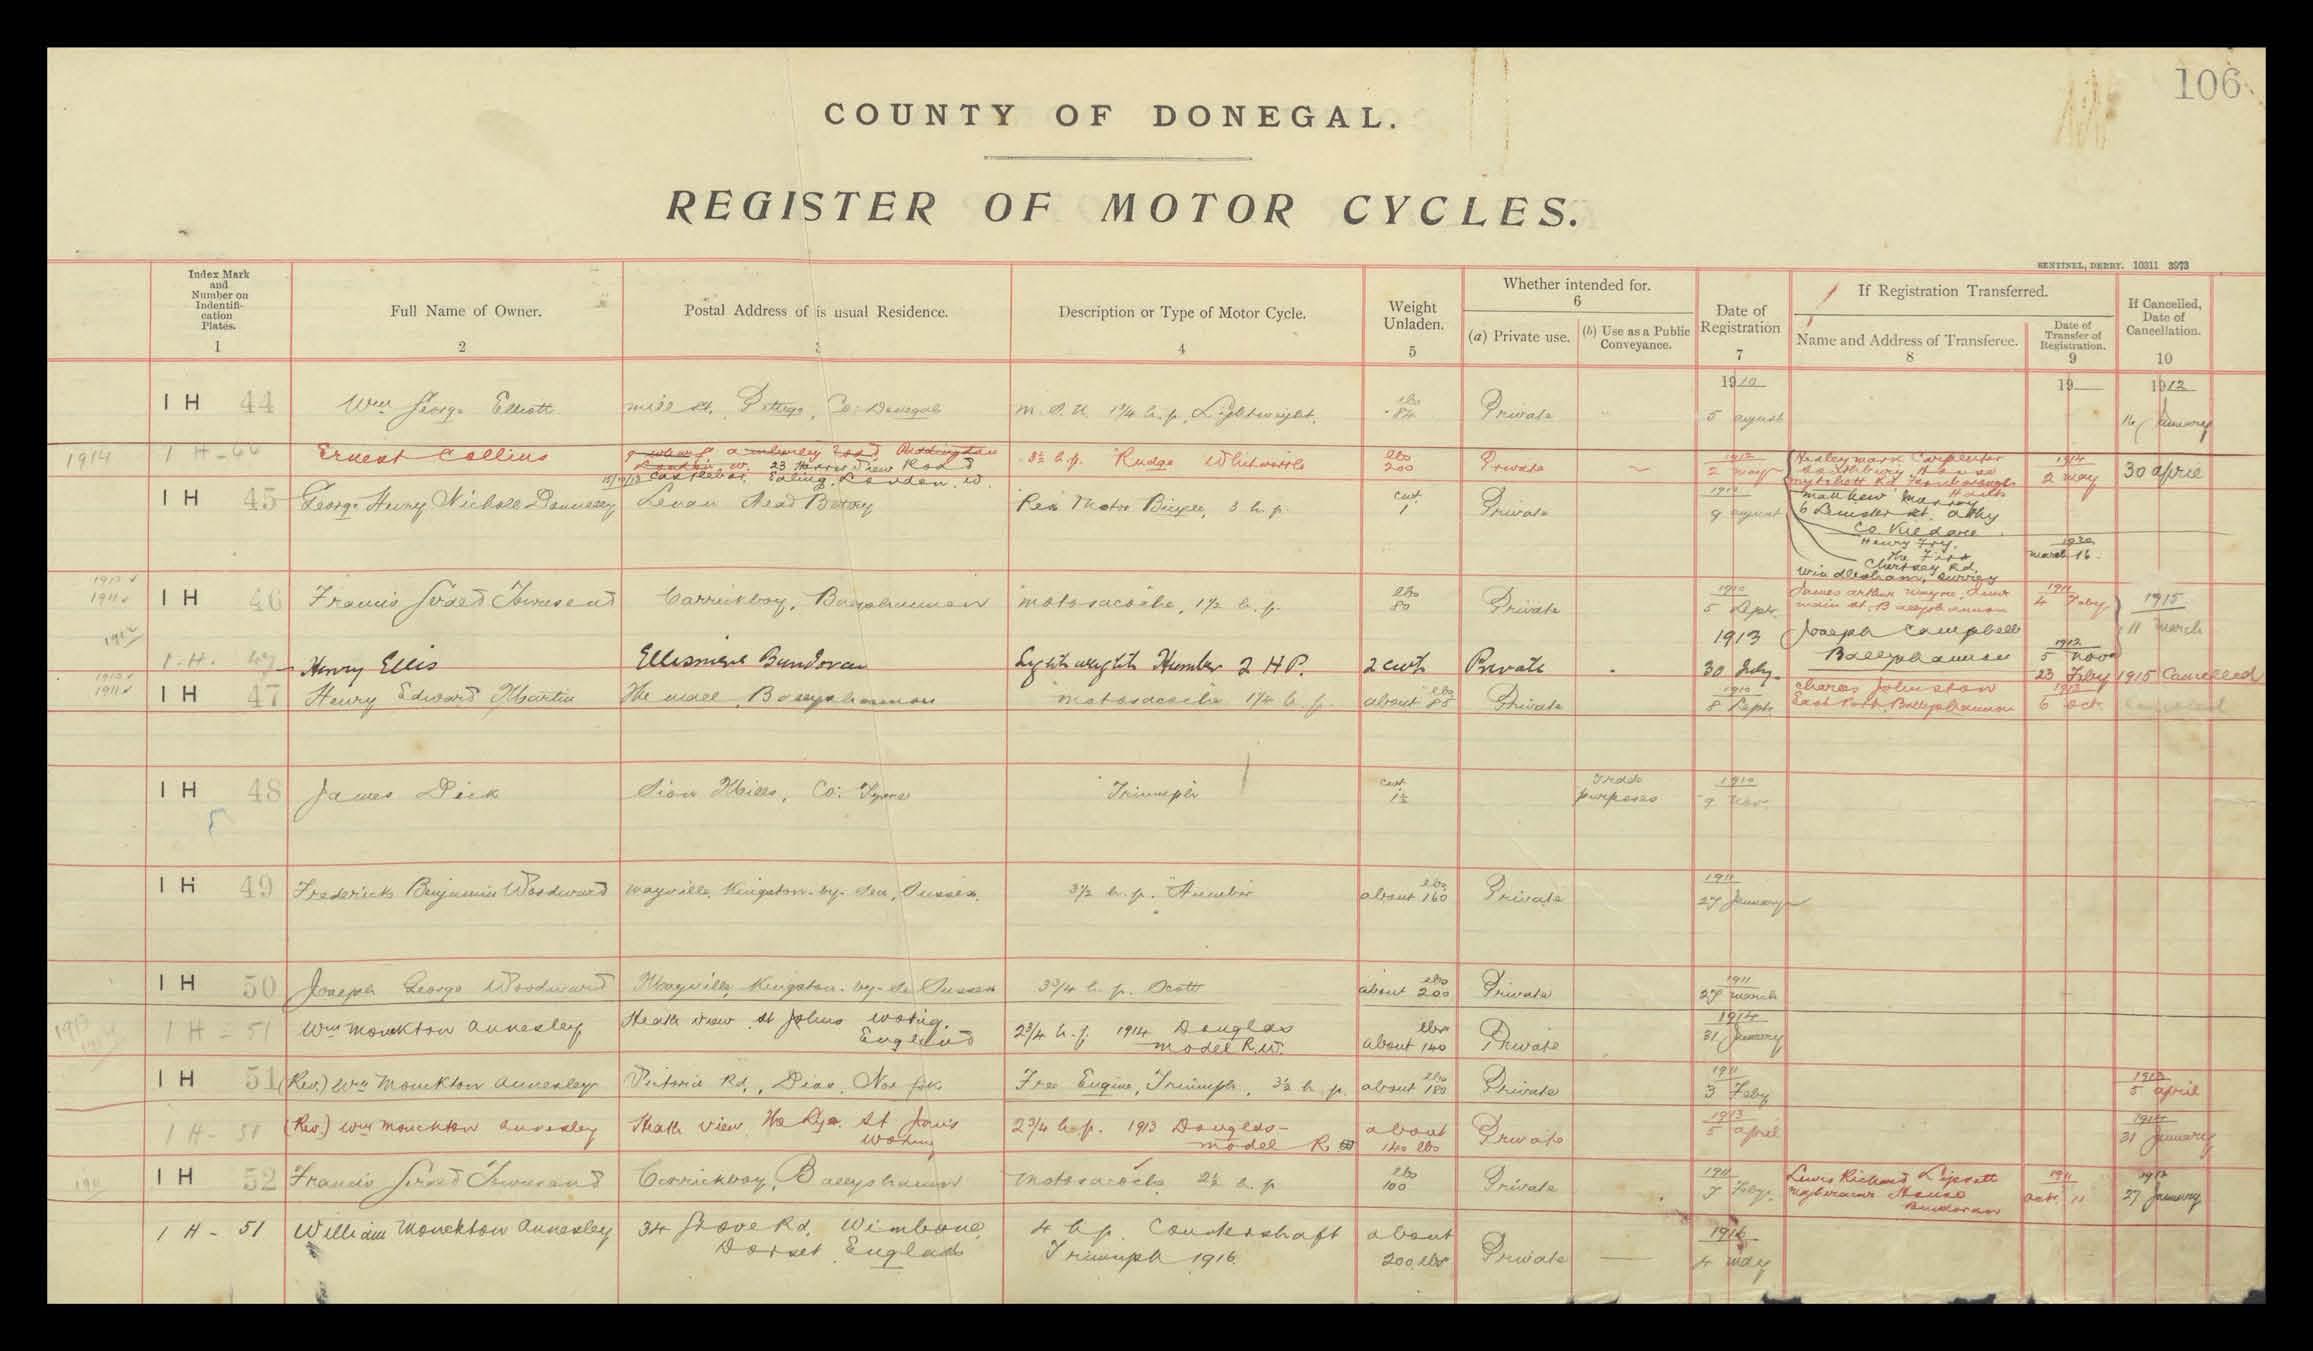 106
COUNTY OF DONEGAL.
REGISTER OF MOTOR CYCLES.
SENTINEL, DERRY. 10311 3973
Index Mark and Number on Indentifi-cation Plates. 1
Full Name of Owner. 2
Postal Address of is usual Residence. 3
Description or Type of Motor Cycle. 4
Weight Unladen. 5
Whether intended for. 6
(a) Private use.
(b) Use as a Public Conveyance.
Date of Registration 7
If Registration Transferred.
Name and Address of Transferee. 8
Date of Transfer of Registration. 9
If Cancelled, Date of Cancellation. 10
1910 19 1912
I H 44 Wm George Elliott Mill St, Pettigo, Co: Donegal 1¾ h.p. Lightweight. lbs 84 Private 5 August January
1914 I H - Ernest Collins 3½ h.p. Rudge Whitworth lbs 200 Private 1912 2 May Carpenter 1914 2 May 30 April
23 Road
Ealing. London. W.
I H 45 George Henry Nicholl Rex Motor Bicycle, 3 h.p. cwt. 1 Private 1910 9 August Matthew
6 Leinster St. Athy
Co. Kildare
Henry Fry.
The Firs
Chertsey Rd,
Windlesham, Surrey
1920
March 16.
1911
I H 46 Francis Townsend Carrickboy, Ballyshannon Motosacoche, 1½ h.p. lbs 80 Private 1910 5 Sept. James Arthur
Main St. Ballyshannon
1911 4 Feby 1915
11 March
1912
I. H. 47 Henry Ellis Ellismere Bundoran Lightweight Humber 2 H.P. 2 cwt Private 1913 30 July Joseph Campbell
Ballyshannon
1912 5 Nov
1911 I H 47 Henry Edward Martin The Mall, Ballyshannon Motosacoche 1¼ h.p. about lbs 85 Private 1910 8 Sept. Charles Johnston
East Port, Ballyshannon 23 Feby 1915 Cancelled
6 Oct
I H 48 James Dick Sion Mills, Co: Tyrone Triumph cwt. 1½ Trade purposes 1910 9 Nov.
I H 49 Frederick Benjamin Woodward Wayville, Kingston-by-Sea, Sussex. 3½ h.p. Humber about lbs 160 Private 1911 27 January
I H 50 Joseph George Woodward Wayville, Kingston-by-Se Sussex 3¾ h.p. Scott about lbs 200 Private 1911 27 March
1913 I H - 51 Wm Monckton Annesley Heath View St Johns Woking, England 2¾ h.p. 1914 Douglas Model R.W. about lbs 140 Private 1914 31 January
I H 51 (Rev.) Wm Monckton Annesley Victoria Rd., Diss, Norfolk Free Engine, Triumph, 3½ h.p. about lbs 180 Private 1911 3 Feby 1913 5 April
I H - 51 (Rev.) Wm Monckton Annesley Heath View, The Rye St Jons Woking 2¾ h.p. 1913 Douglas - Model R about 140 lbs Private 1913 5 April 1914 31 January
1911 I H 52 Francis Townsend Carrickboy, Ballyshannon Motosacoche 2½ h.p. lbs 100 Private 1911 7 Feby. Lewis Richard Lipsett
House
Bundoran
1911 Oct. 11 1912 27 January
I H - 51 William Monckton Annesley 34 Grove Rd, Wimborne, Dorset England 4 h.p. Countershaft Triumph 1916. about 200 lbs Private 1916 4 May